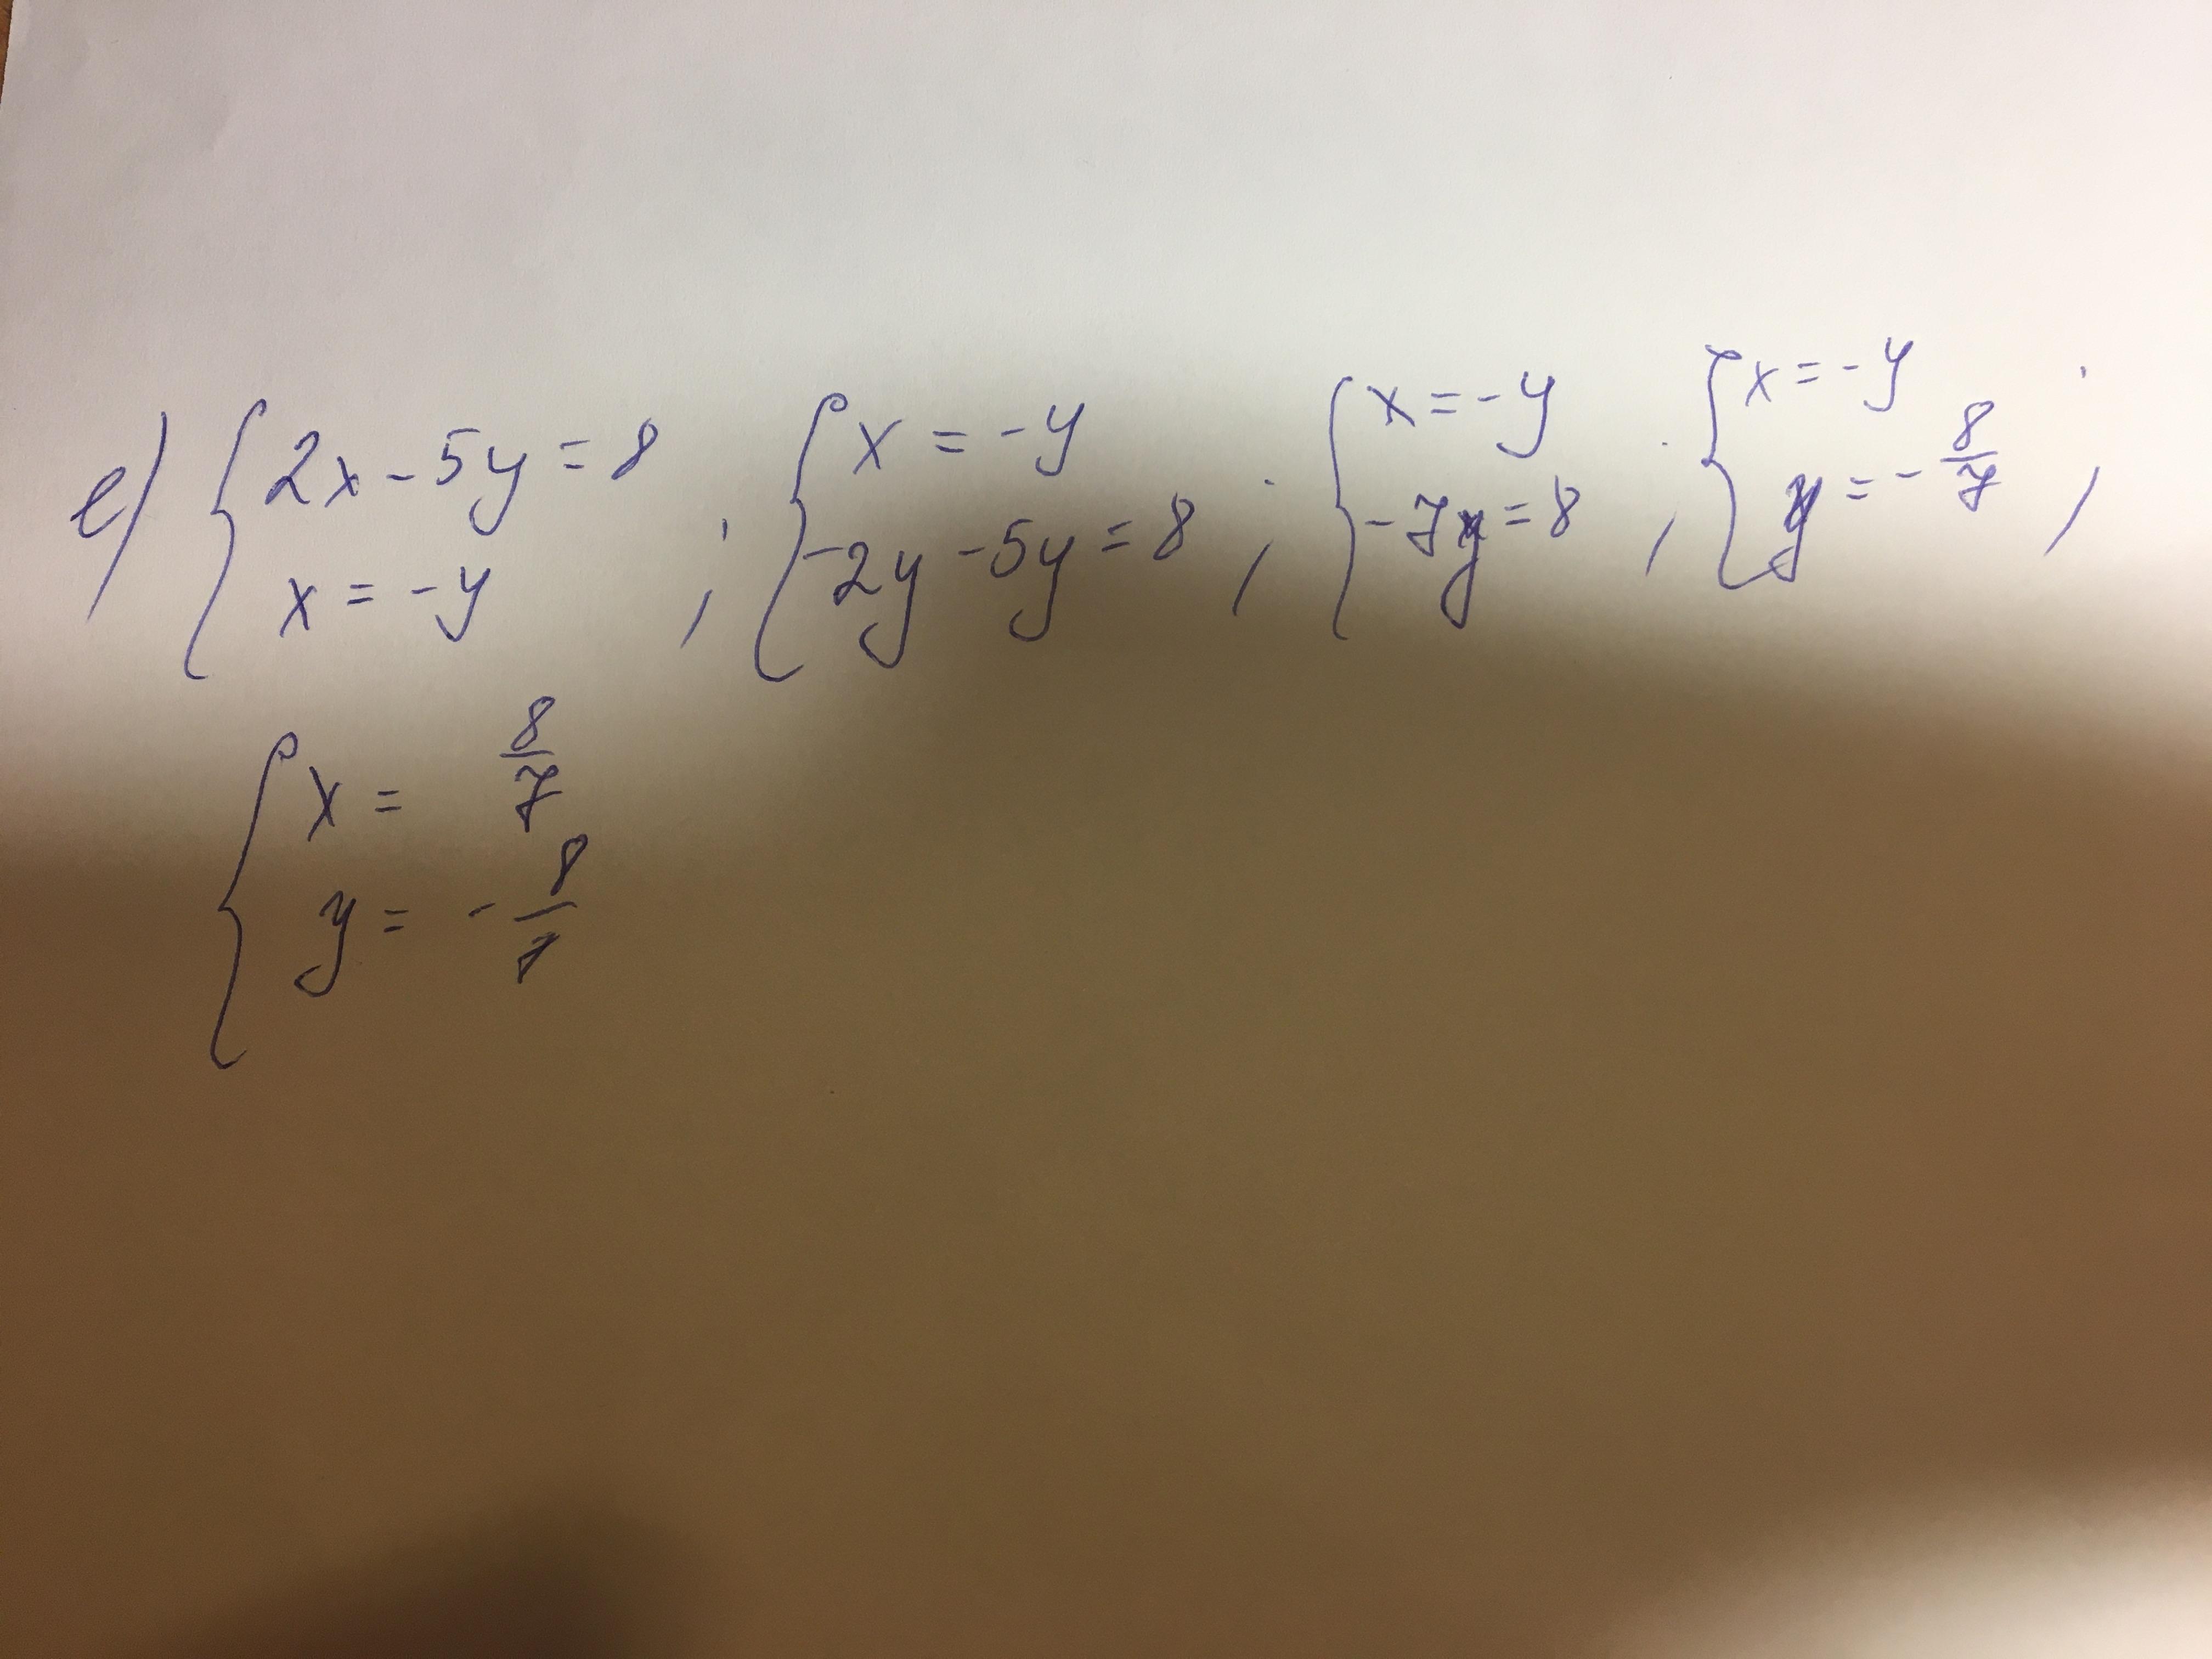 e) { 2x - 5y = 8
x = -y ;
{ x = -y
-2y - 5y = 8 ;
{ x = -y
-7y = 8 ;
{ x = -y
y = -8/7 ;
{ x = 8/7
y = -8/7